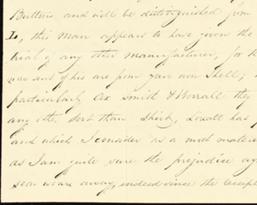 Buttons and will be distinguished from
Is, this man appears to have given the
trial of any other manufacturer, for
use out of his are from your own Shell,
particularly Cox Smith & Worrall they
any other sort than Shirk, Lowell has
and which I consider as a most mater
as I am quite sure the prejudice ag
soon wear away, indeed since the receipt